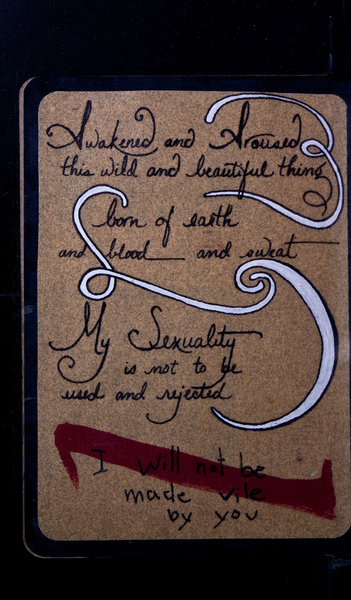 Awakened and Aroused
this wild and beautiful thing
born of earth
and blood and sweat
My Sexuality
is not to be
used and rejected
I will not be
made vile
by you